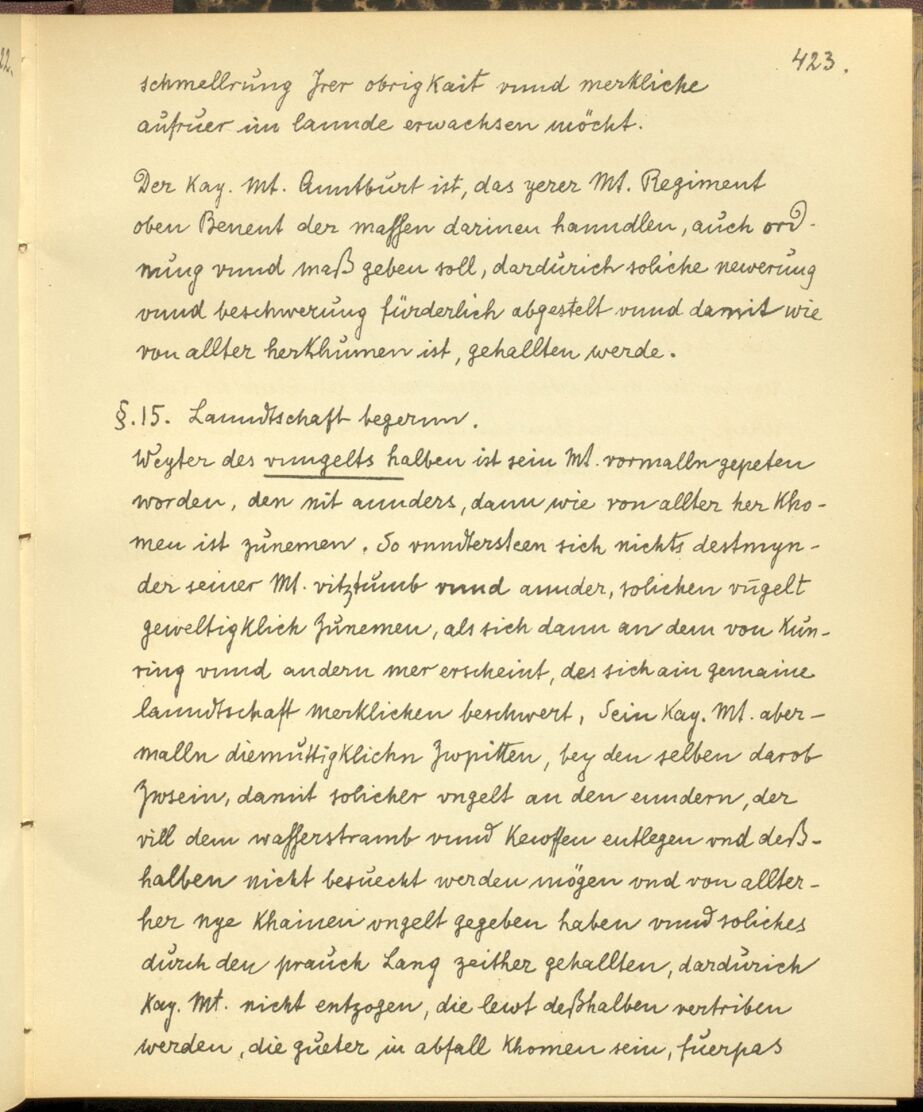 22.
423.
schmellrung Irer obrigkait vnnd merkliche
aufruer im lannde erwachsen möcht.
Der Kay. Mt. Anntburt ist, das yerer Mt. Regiment
oben Benent der massen darinen hanndlen, auch ord-
nung vnnd maß geben soll, dardurich soliche newerung
vnnd beschwerung fürderlich abgestelt vnnd damit wie
von allter herkhumen ist, gehallten werde.
§.15. Lanndtschaft begernn.
Weyter des vnngelts halben ist sein Mt. vormalln gepeten
worden, den nit annders, dann wie von allter her kho-
men ist zunemen. So vnndtersteen sich nichts destmyn-
der seiner Mt. vitztumb vnnd annder, solichen vngelt
geweltigklich zunemen, als sich dann an dem von Kun-
ring vnnd andern mer erscheint, des sich ain gemaine
lanndtschaft merklichen beschwert, Sein Kay. Mt. aber-
malln diemuttigklichn zwpitten, bey den selben darob
zwsein, damit solicher vngelt an den enndern, der
vill dem wasserstramb vnnd entlegen vnd deß-
halben nicht besuecht werden mögen vnd von allter-
her nye khainen vngelt gegeben haben vnnd soliches
durch den prauch Lang zeither gehallten, dardurich
Kay. Mt. nicht entzogen, die lewt deßhalben vertriben
werden, die gueter in abfall khomen sein, fuerpas